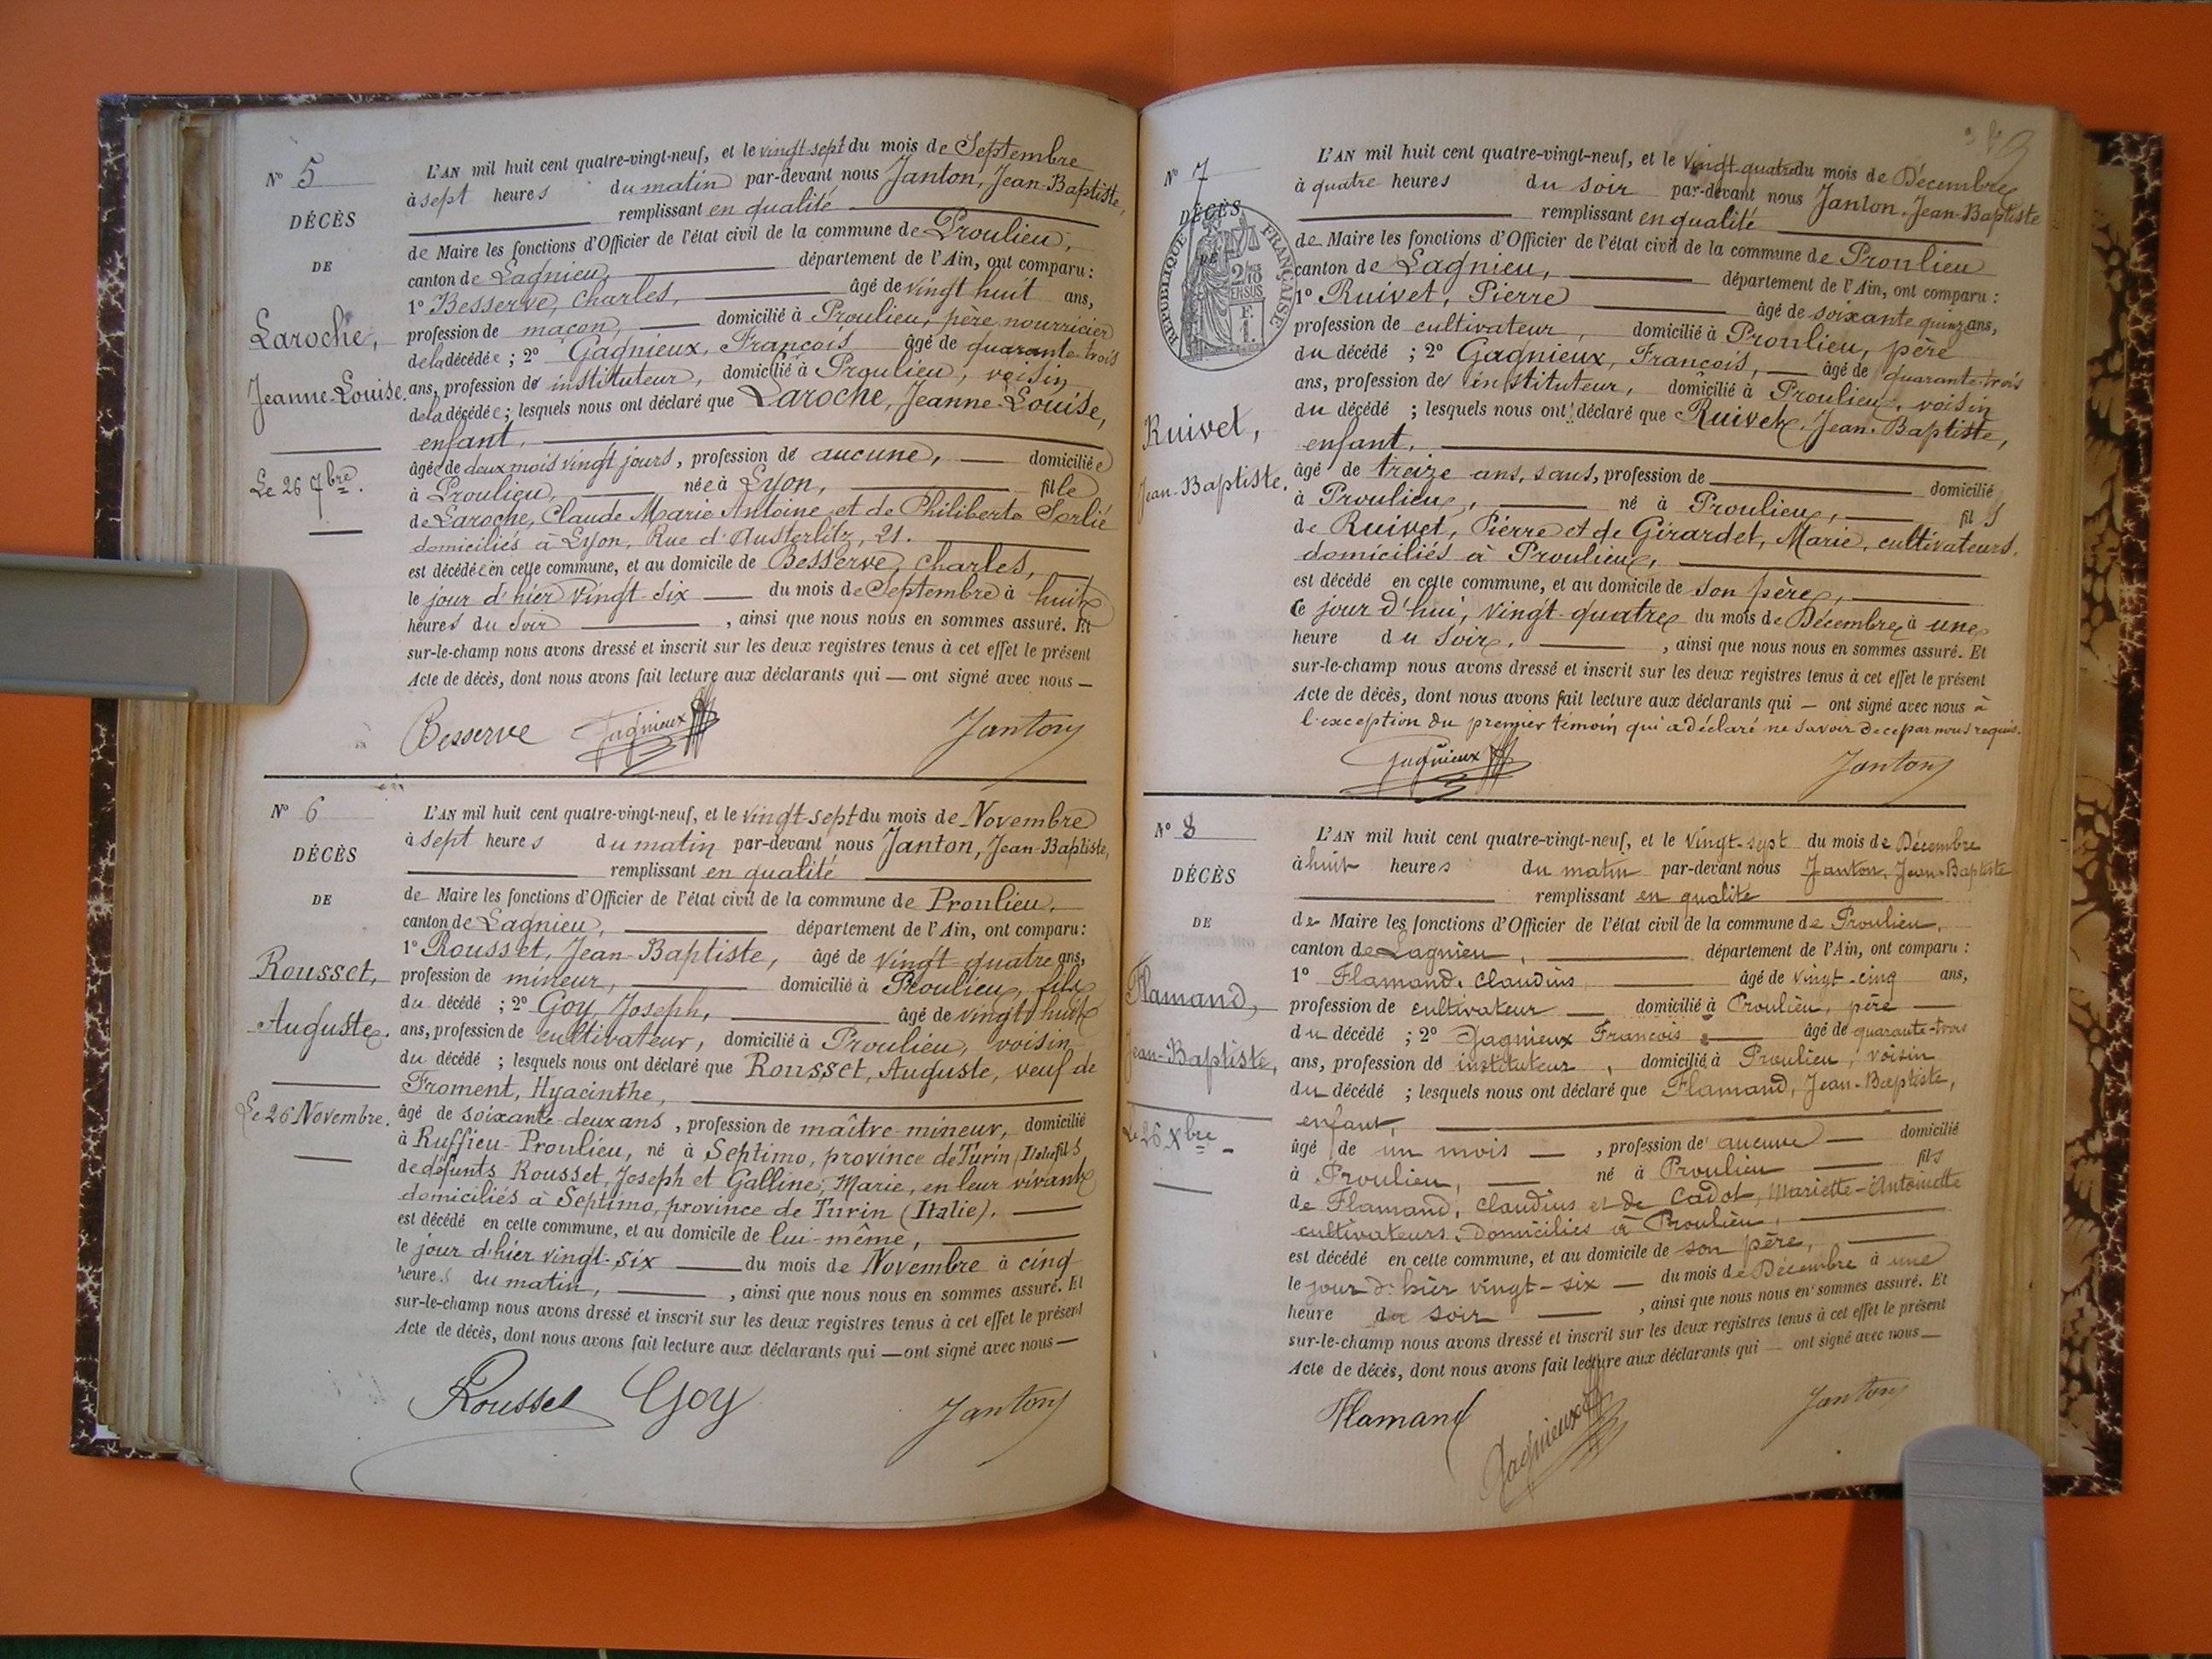 N° 5
DÉCÈS
DE
Laroche,
Jeanne-Louise.
Le 26 7bre.
L'AN mil huit cent quatre-vingt-neuf, et le vingt sept du mois de Septembre
à sept heures du matin par-devant nous Janton, Jean-Baptiste,
remplissant en qualité
de Maire les fonctions d'Officier de l'état civil de la commune de Proulieu,
canton de Lagnieu, département de l'Ain, ont comparu :
1° Besserve, Charles, âgé de vingt huit ans,
profession de maçon, domicilié à Proulieu, père nourricier
de la décédée ; 2° Gagnieux, François âgé de quarante-trois
ans, profession de instituteur, domicilié à Proulieu, voisin
de la décédée ; lesquels nous ont déclaré que Laroche, Jeanne-Louise,
enfant,
âgée de deux mois vingt jours, profession de aucune, domiciliée
à Proulieu, née à Lyon, fille
de Laroche, Claude Marie Antoine et de Philiberte Sorlié
domiciliés à Lyon, Rue d'Austerlitz, 21.
est décédée en cette commune, et au domicile de Besserve, Charles,
le jour d'hier vingt-six du mois de Septembre à huit
heures du soir , ainsi que nous nous en sommes assuré. Et
sur-le-champ nous avons dressé et inscrit sur les deux registres tenus à cet effet le présent
Acte de décès, dont nous avons fait lecture aux déclarants qui — ont signé avec nous —
Besserve Gagnieux Janton
N° 6
DÉCÈS
DE
Rousset,
Auguste.
Le 26 Novembre.
L'AN mil huit cent quatre-vingt-neuf, et le vingt-sept du mois de Novembre
à sept heures du matin par-devant nous Janton, Jean-Baptiste,
remplissant en qualité
de Maire les fonctions d'Officier de l'état civil de la commune de Proulieu,
canton de Lagnieu, département de l'Ain, ont comparu :
1° Rousset, Jean-Baptiste, âgé de vingt-quatre ans,
profession de mineur, domicilié à Proulieu, fils
du décédé ; 2° Goy, Joseph, âgé de vingt huit
ans, profession de cultivateur, domicilié à Proulieu, voisin
du décédé ; lesquels nous ont déclaré que Rousset, Auguste, veuf de
Froment, Hyacinthe,
âgé de soixante-deux ans , profession de maître-mineur, domicilié
à Ruffieu-Proulieu, né à Septimo, province de Turin (Italie) fils
de défunts Rousset, Joseph et Galline, Marie, en leur vivant
domiciliés à Septimo, province de Turin (Italie).
est décédé en cette commune, et au domicile de lui-même,
le jour d'hier vingt-six du mois de Novembre à cinq
heures du matin, , ainsi que nous nous en sommes assuré. Et
sur-le-champ nous avons dressé et inscrit sur les deux registres tenus à cet effet le présent
Acte de décès, dont nous avons fait lecture aux déclarants qui — ont signé avec nous —
Rousset Goy Janton
N° 7
DÉCÈS
DE
RÉPUBLIQUE FRANÇAISE
2/10 EN SUS
F.
1.
Ruivet,
Jean-Baptiste.
L'AN mil huit cent quatre-vingt-neuf, et le vingt-quatre du mois de Décembre
à quatre heures du soir par-devant nous Janton, Jean-Baptiste
remplissant en qualité
de Maire les fonctions d'Officier de l'état civil de la commune de Proulieu
canton de Lagnieu, département de l'Ain, ont comparu :
1° Ruivet, Pierre âgé de soixante quinz ans,
profession de cultivateur, domicilié à Proulieu, père
du décédé ; 2° Gagnieux, François, âgé de quarante-trois
ans, profession de instituteur, domicilié à Proulieu, voisin
du décédé ; lesquels nous ont déclaré que Ruivet, Jean-Baptiste,
enfant,
âgé de treize ans, sans, profession de domicilié
à Proulieu, né à Proulieu, fils
de Ruivet, Pierre et de Girardet, Marie, cultivateurs,
domiciliés à Proulieu,
est décédé en cette commune, et au domicile de son père,
ce jour d'hui, vingt-quatre du mois de Décembre à une
heure du soir. , ainsi que nous nous en sommes assuré. Et
sur-le-champ nous avons dressé et inscrit sur les deux registres tenus à cet effet le présent
Acte de décès, dont nous avons fait lecture aux déclarants qui — ont signé avec nous à
l'exception du premier témoin qui a déclaré ne savoir de ce par nous requis.
Gagnieux Janton
N° 8
DÉCÈS
DE
Flamand,
Jean-Baptiste,
Le 26 Xbre
L'AN mil huit cent quatre-vingt-neuf, et le vingt-sept du mois de Décembre
à huit heures du matin par-devant nous Janton, Jean-Baptiste
remplissant en qualité
de Maire les fonctions d'Officier de l'état civil de la commune de Proulieu,
canton de Lagnieu, département de l'Ain, ont comparu :
1° Flamand, Claudius âgé de vingt-cinq ans,
profession de cultivateur domicilié à Proulieu, père
du décédé ; 2° Gagnieux François âgé de quarante-trois
ans, profession de instituteur , domicilié à Proulieu, voisin
du décédé ; lesquels nous ont déclaré que Flamand, Jean-Baptiste,
enfant,
âgé de un mois , profession de aucune domicilié
à Proulieu, né à Proulieu fils
de Flamand, Claudius et de Cadot, Mariette-Antoinette
cultivateurs, domiciliés à Proulieu,
est décédé en cette commune, et au domicile de son père,
le jour d'hier vingt-six du mois de Décembre à une
heure du soir , ainsi que nous nous en sommes assuré. Et
sur-le-champ nous avons dressé et inscrit sur les deux registres tenus à cet effet le présent
Acte de décès, dont nous avons fait lecture aux déclarants qui — ont signé avec nous —
Flamand Gagnieux Janton